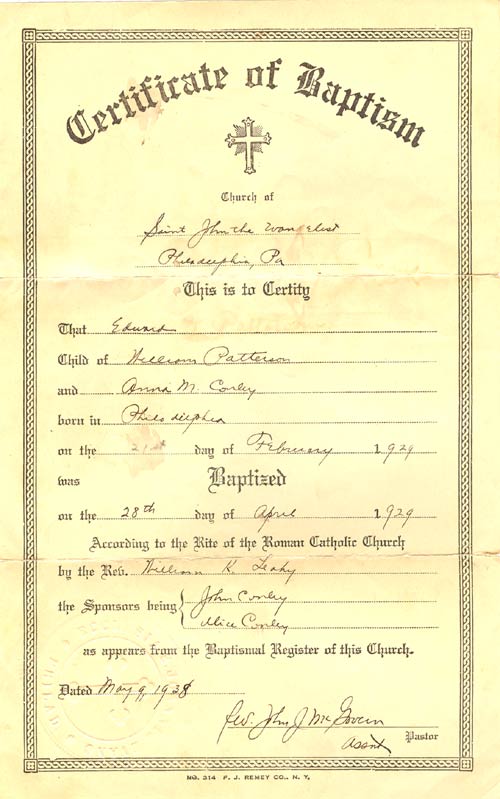 Certificate of Baptism
Church of
Saint John the Evangelist
Philadelphia, Pa
This is to Certify
That Edward
Child of William Patterson
and Anna M. Conley
born in Philadelphia
on the 21st day of February 1929
was Baptized
on the 28th day of April 1929
According to the Rite of the Roman Catholic Church
by the Rev. William K. Leahy
the Sponsors being John Conley
Alice Conley
as appears from the Baptismal Register of this Church.
Dated May 9, 1938
Rev. John J. McGovern
Asst Pastor
NO. 314 F. J. REMEY CO., N. Y.